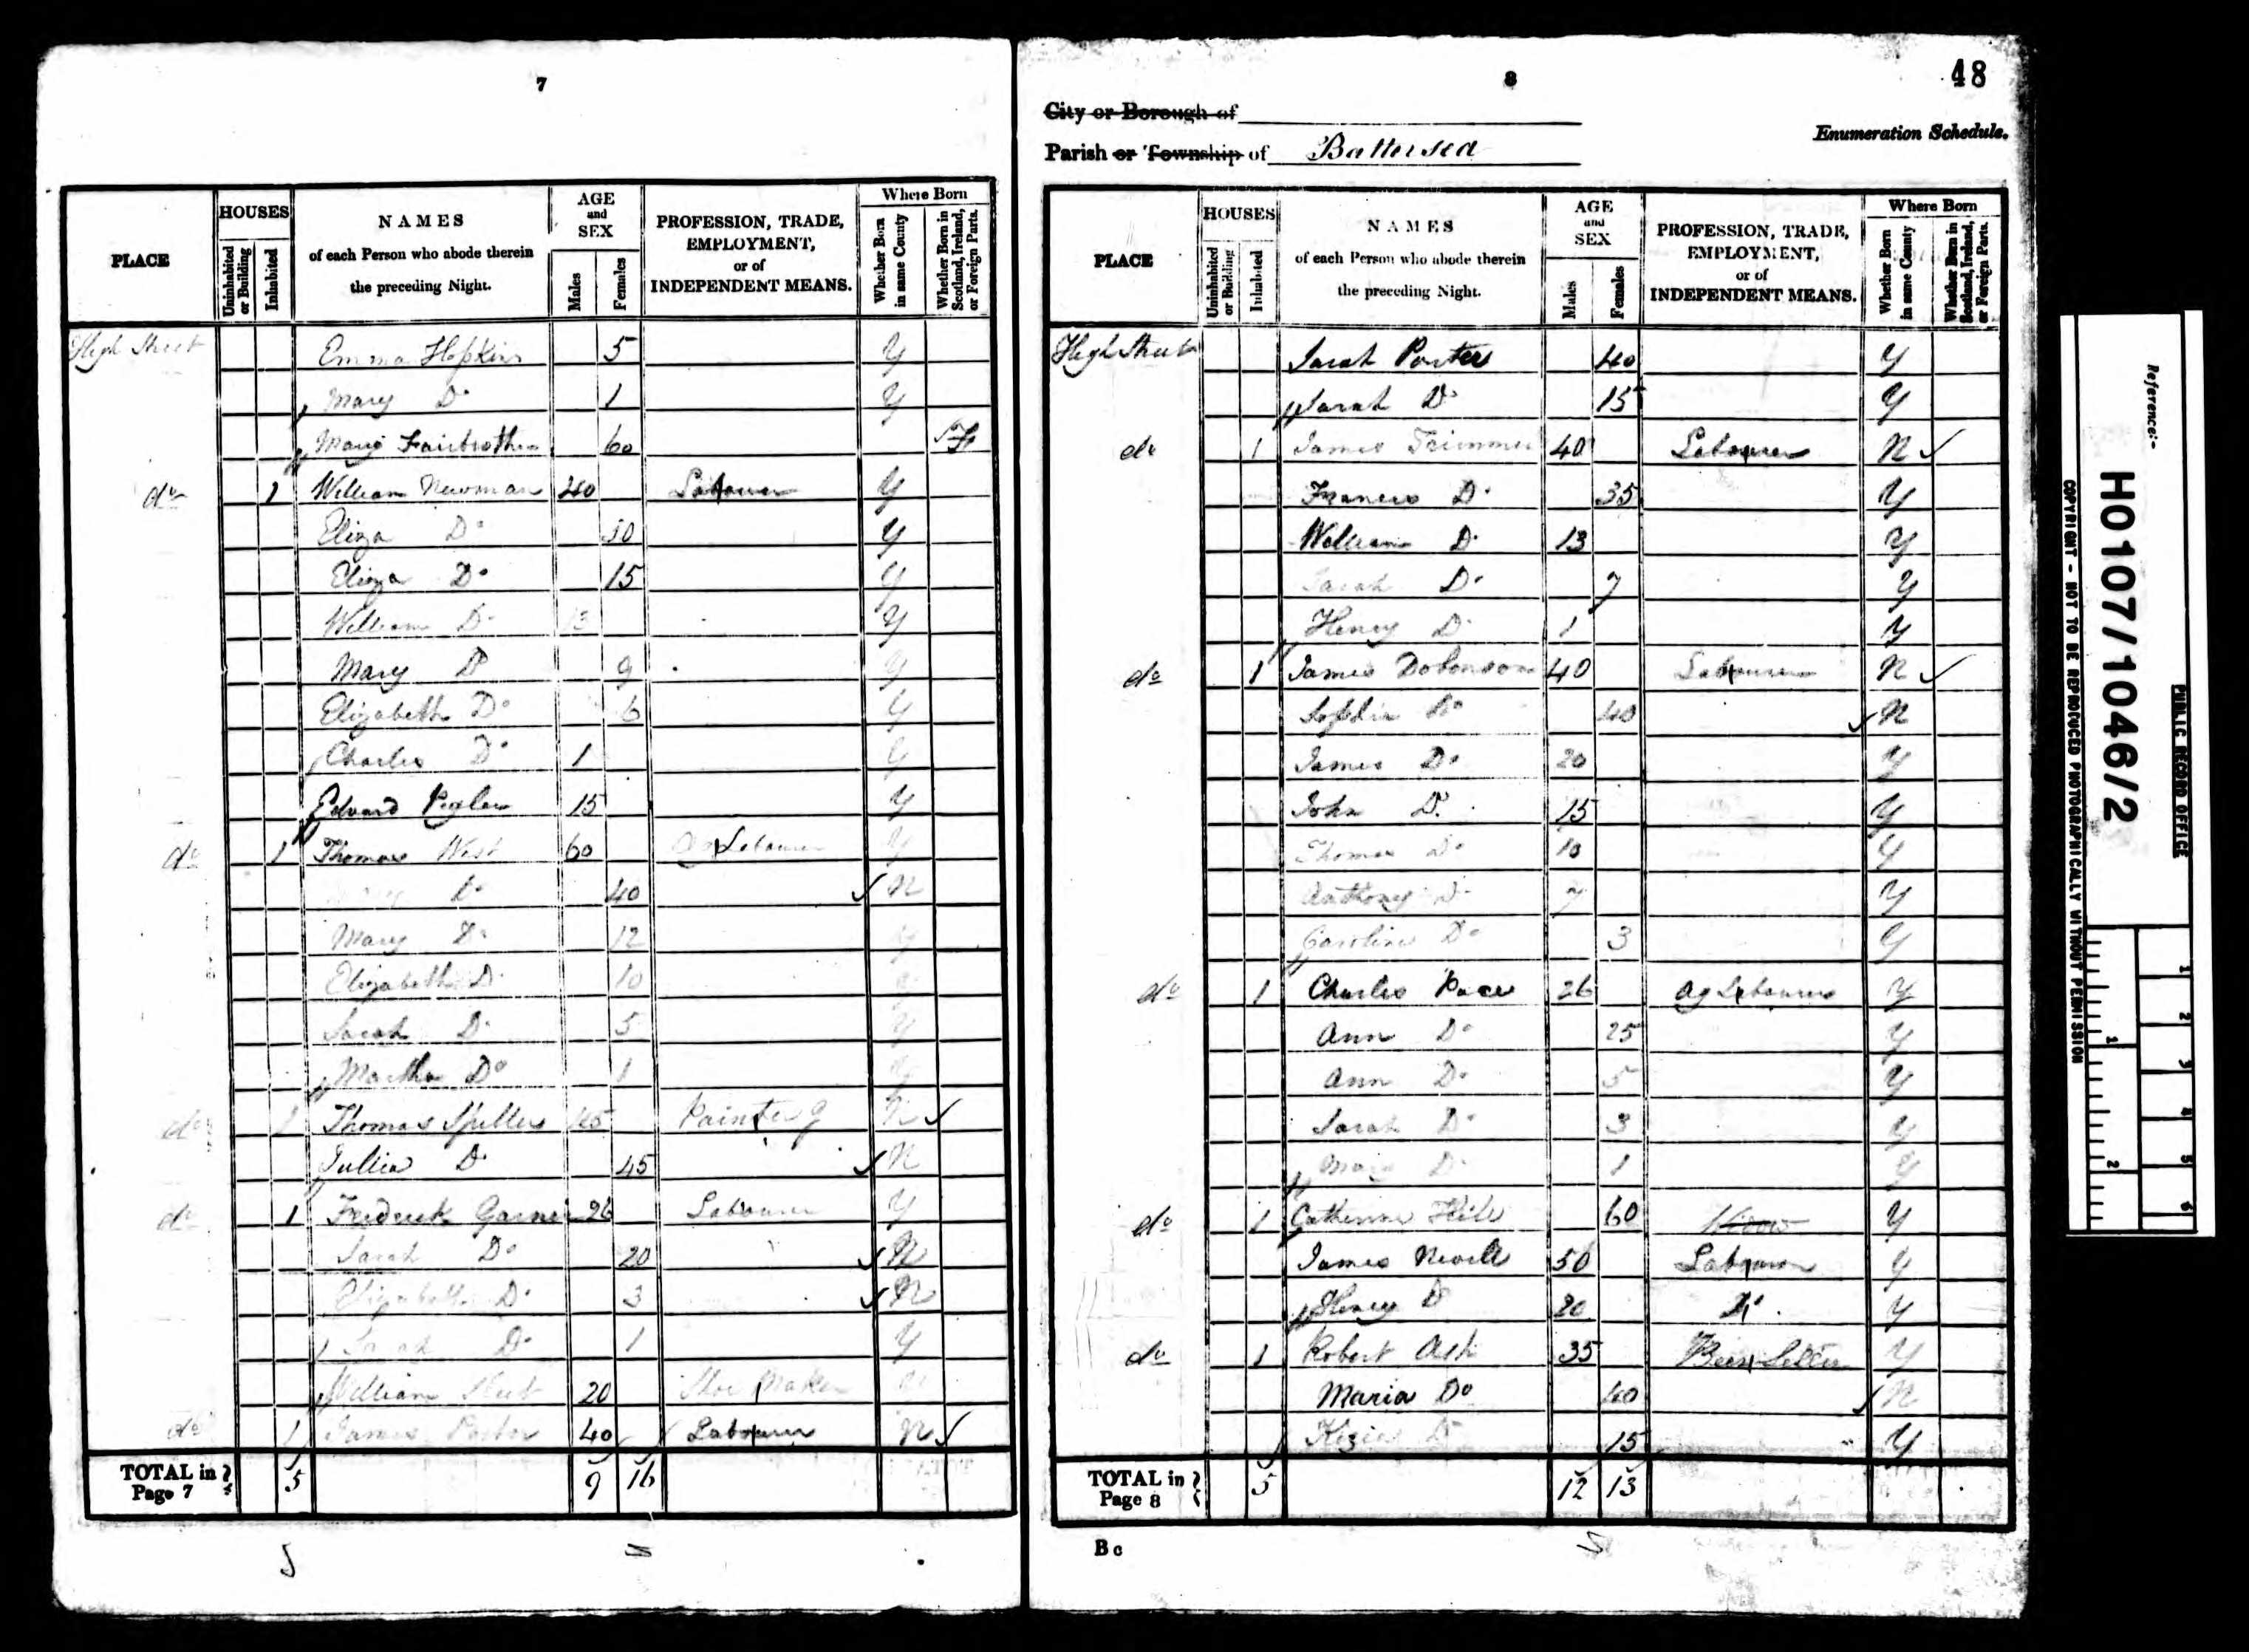 7
PLACE
HOUSES
Uninhabited or Building
Inhabited
NAMES
of each Person who abode therein
the preceding Night.
AGE
and
SEX
Males
Females
PROFESSION, TRADE,
EMPLOYMENT,
or of
INDEPENDENT MEANS.
Where Born
Whether Born in same County
Whether Born in Scotland, Ireland, or Foreign Parts.
High Street Emma Hopkins 5 Y
Mary Do 1 Y
Mary Fairbrother 60 F
do 1 William Newman 40 Labourer Y
Eliza Do Y
Eliza Do 15 Y
William Do 13 Y
Mary Do 9 Y
Elizabeth Do 6 Y
Charles Do 1 Y
Edward 15 Y
do 1 Thomas West 60 Ag Labourer Y
Do 40 N
Mary Do 12 Y
Elizabeth Do 10 Y
Sarah Do 5 Y
Martha Do 1 Y
do 1 Thomas Spiller 45 Painter J N
Jullia Do 45 N
do 1 Frederick Garner 26 Labourer Y
Sarah Do 20 N
Elizabeth Do 3 N
Sarah Do 1 Y
William 20 Shoe Maker N
do 1 James Porter 40 Labourer N
TOTAL in Page 7 5 9 16
8
48
City or Borough of
Enumeration Schedule.
Parish or Township of Battersea
PLACE
HOUSES
Uninhabited or Building
Inhabited
NAMES
of each Person who abode therein
the preceding Night.
AGE
and
SEX
Males
Females
PROFESSION, TRADE,
EMPLOYMENT,
or of
INDEPENDENT MEANS.
Where Born
Whether Born in same County
Whether Born in Scotland, Ireland, or Foreign Parts.
High Street Sarah Porter 40 Y
Sarah Do 15 Y
do 1 James Trimmer 40 Labourer N
Frances Do 35 Y
William Do 13 Y
Sarah Do 7 Y
Henry Do 1 Y
do 1 James Dobonson 40 Labourer N
Sophia Do 40 N
James Do 20 Y
John Do 15 Y
Thomas Do 10 Y
Anthony Do 7 Y
Caroline Do 3 Y
do 1 Charles Pace 26 Ag Labourer Y
Ann Do 25 Y
Ann Do 5 Y
Sarah Do 3 Y
Mary Do 1 Y
do 1 Catherine 60 Y
James Nevill 50 Labourer Y
Henry Do 20 Do Y
do 1 Robert Ash 35 Beer Seller Y
Maria Do 40 N
Kezia Do 15 Y
TOTAL in Page 8 5 12 13
B c
Reference:-
HO107/1046/2
PUBLIC RECORD OFFICE
COPYRIGHT - NOT TO BE REPRODUCED PHOTOGRAPHICALLY WITHOUT PERMISSION
1
2
1
2
3
4
5
6